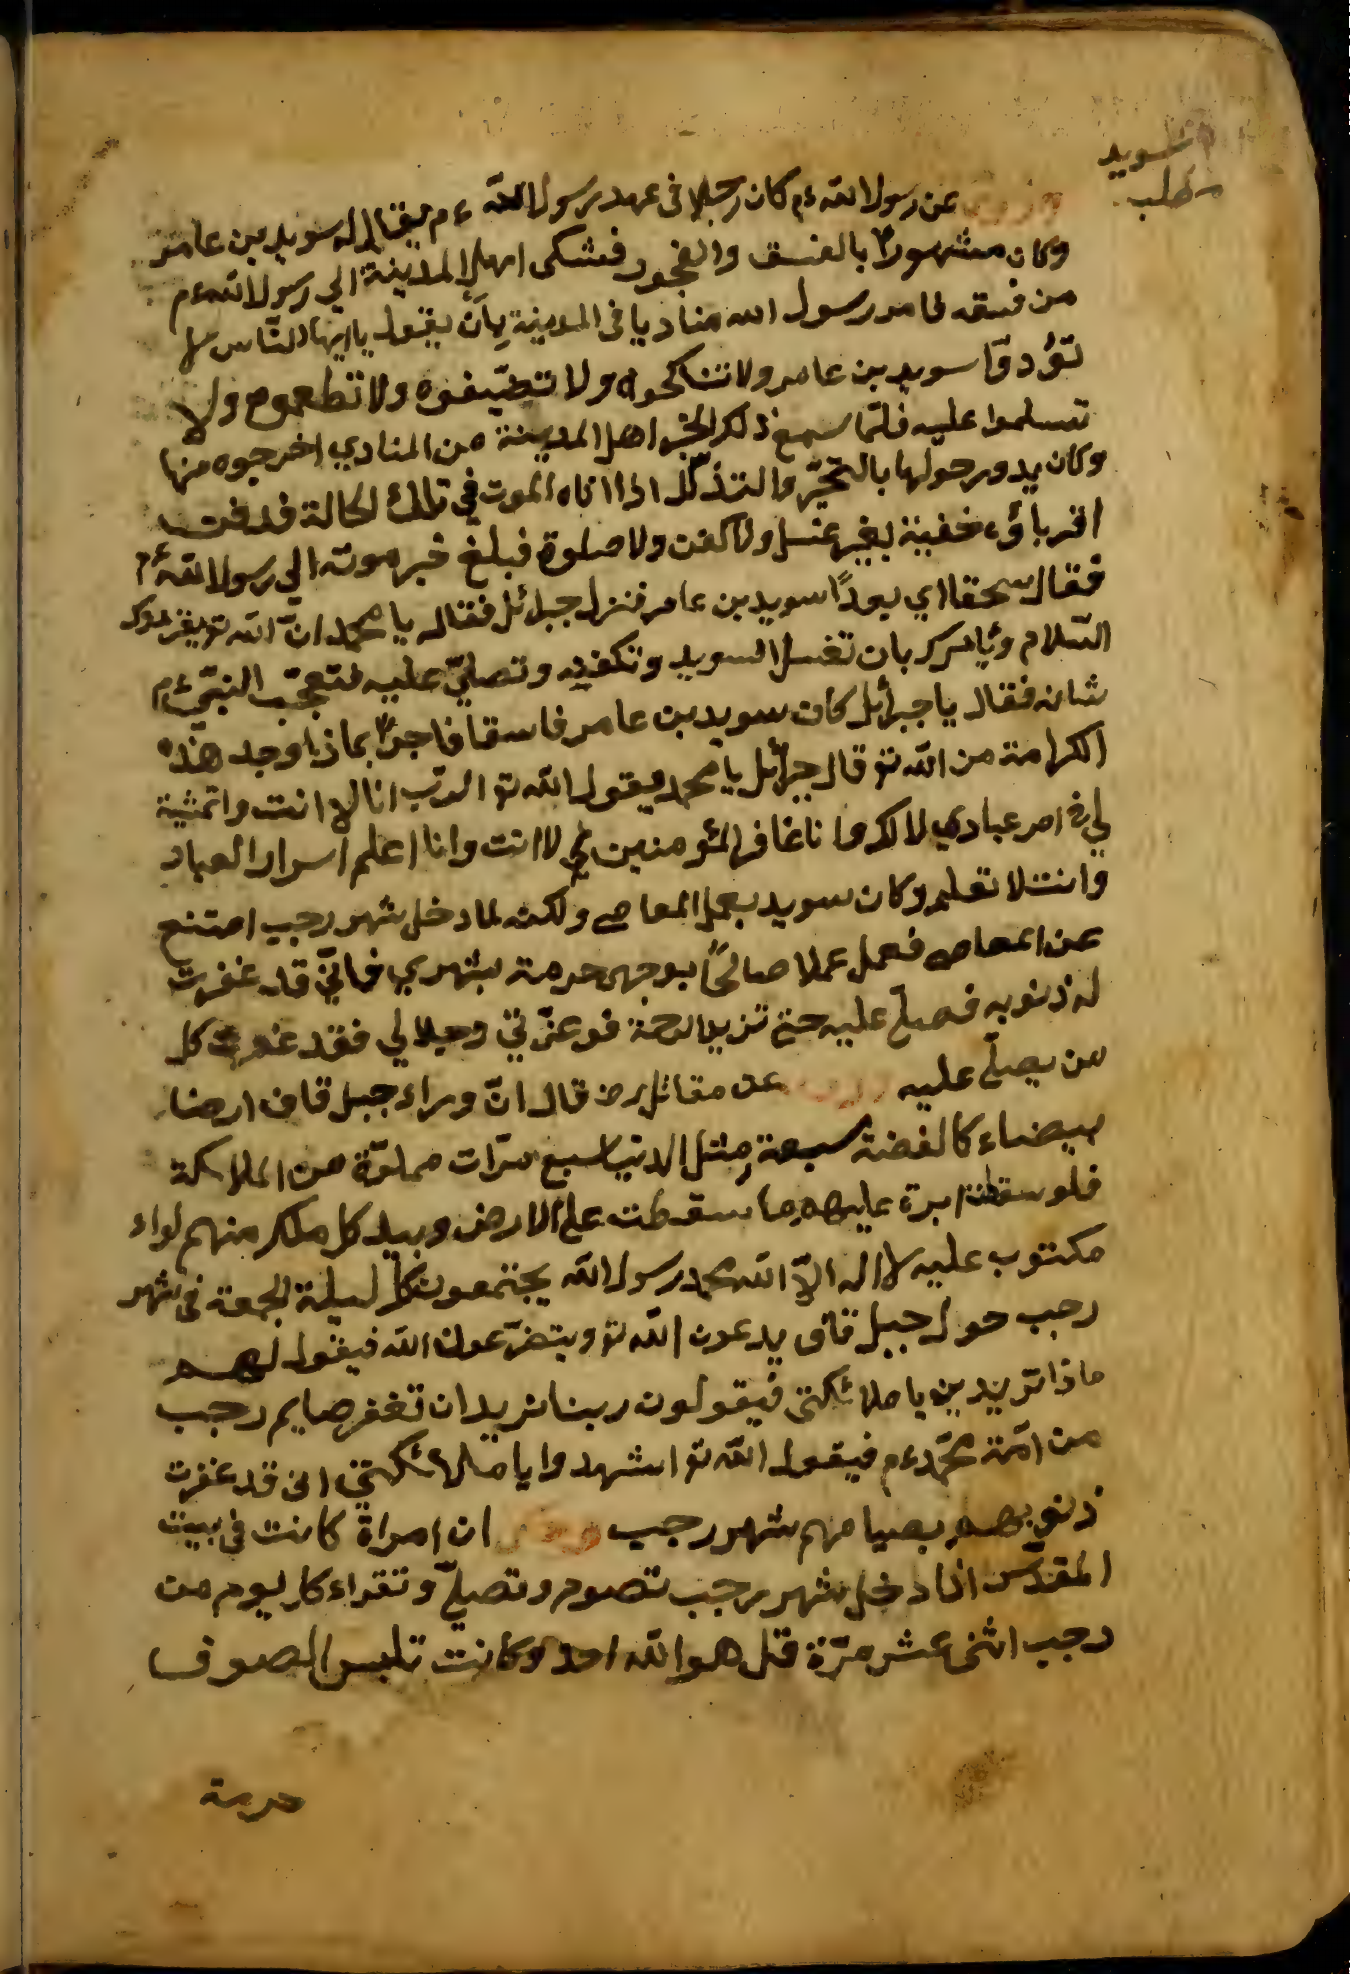 سويد
مطلب
وروي عن رسول الله ءم كان رجلا فى عهد رسول الله ءم يقال له سويد بن عامر
وكان مشهورا بالفسق والفجور فشكى اهل المدينة الي رسول الله ءم
من فسقه فامر رسول الله مناديا فى المدينة بأن يقول يا ايها الناس لا
تؤدوا سويد بن عامر ولا تناكحوه ولا تضيّفوه ولا تطعموه ولا
تسلموا عليه فلمّا سمع ذلك الخبر اهل المدينة من المنادي اخرجوه منها
وكان يدور حولها بالتحيّر والتذلّل اذا اتاه الموت في تلك الحالة فدفنت
اقرباؤه خفية بغير غسل ولا كفن ولا صلوة فبلغ خبر موته الي رسول الله ءم
فقال سحقا اي بعدًا سويد بن عامر فنزل جبرائل فقال يا محمد انّ الله تع يقرئك
السّلام ويأمرك بان تغسل السويد وتكفنه وتصلّي عليه فتعجّب النبيّ ءم
شانه فقال يا جبرائل كان سويد بن عامر فاسقا فاجرا بماذا وجد هذه
الكرامة من الله تع قال جبرائل يا محمد يقول الله تع الرّب انا لا انت والمشية
لي في امر عبادي لا لك وانا غافر المؤمنين لا انت وانا اعلم اسرار العباد
وانت لا تعلم وكان سويد يعمل المعاصى ولكنه لما دخل شهر رجب امتنع
عن المعاصى فعمل عملا صالحًا بوجهى حرمة بشهري فانّي قد غفرت
له ذنوبه فصلّ عليه حتى تزيد الرحمة فوعزّتي وجلالي فقد غفرت كل
من يصلّي عليه وروي عن مقاتل رض قال انّ وراء جبل قاف ارضا
بيضاء كالفضة سبعة مثل الدنيا سبع مرّات مملوّة من الملائكة
فلو سقطت ابرة عليهم ما سقطت على الارض وبيد كل ملك منهم لواء
مكتوب عليه لا اله الاّ الله محمد رسول الله يجتمعون كل ليلة الجمعة فى شهر
رجب حول جبل قاف يدعون الله تع ويتضرّعون الله فيقول لهم
ماذا تريدين يا ملائكتى فيقولون ربنا نريد ان تغفر صايم رجب
من امّة محمّد ءم فيقول الله تع اشهدوا يا ملائكتي انى قد غفرت
ذنوبهم بصيامهم شهر رجب ان امراة كانت فى بيت
المقدّس اذا دخل شهر رجب تصوم وتصلّي وتقراء كل يوم من
رجب اثنى عشر مرّة قل هو الله احد وكانت تلبس الصوف
حرمة